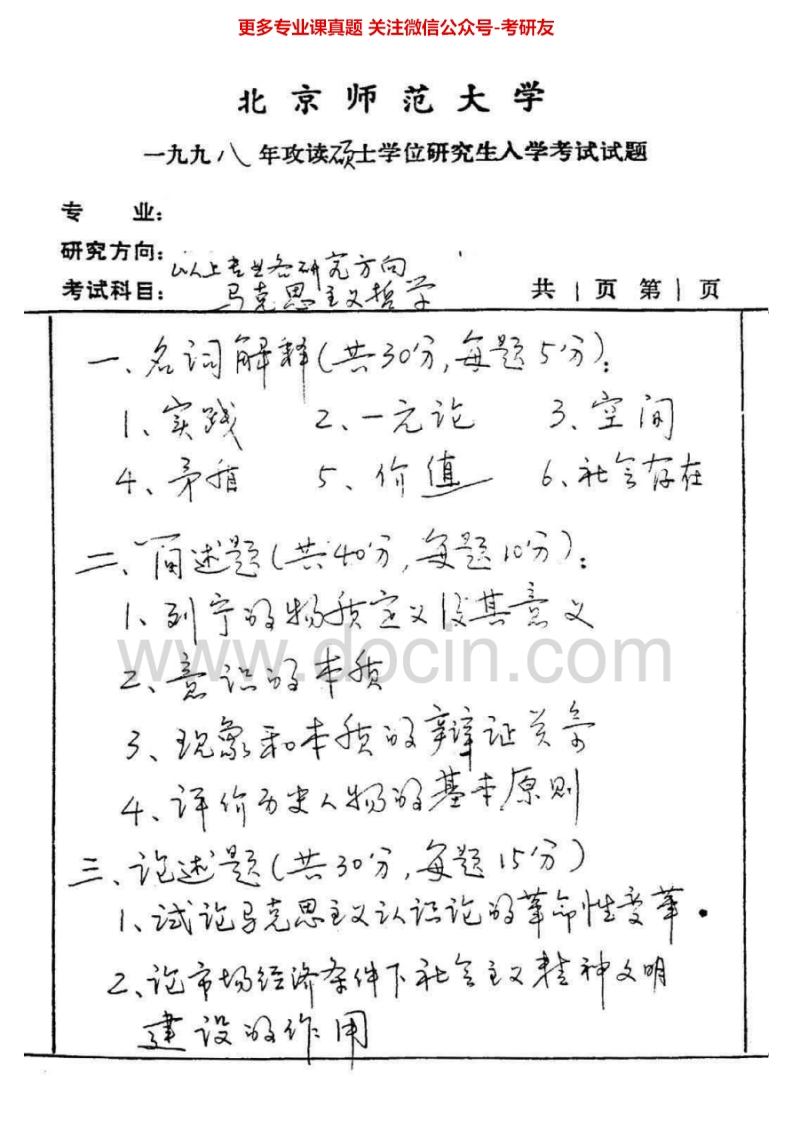 更多专业课真题 关注微信公众号-考研友
北京师范大学
一九九八年攻读硕士学位研究生入学考试试题
专 业：
研究方向：以上专业各研究方向
考试科目：马克思主义哲学 共1页 第1页
一、名词解释(共30分,每题5分)：
1、实践 2、一元论 3、空间
4、矛盾 5、价值 6、社会存在
二、简述题(共40分,每题10分)：
1、列宁的物质定义及其意义
www.docin.com
2、意识的本质
3、现象和本质的辩证关系
4、评价历史人物的基本原则
三、论述题(共30分,每题15分)
1、试论马克思主义认识论的革命性变革.
2、论市场经济条件下社会主义精神文明
建设的作用